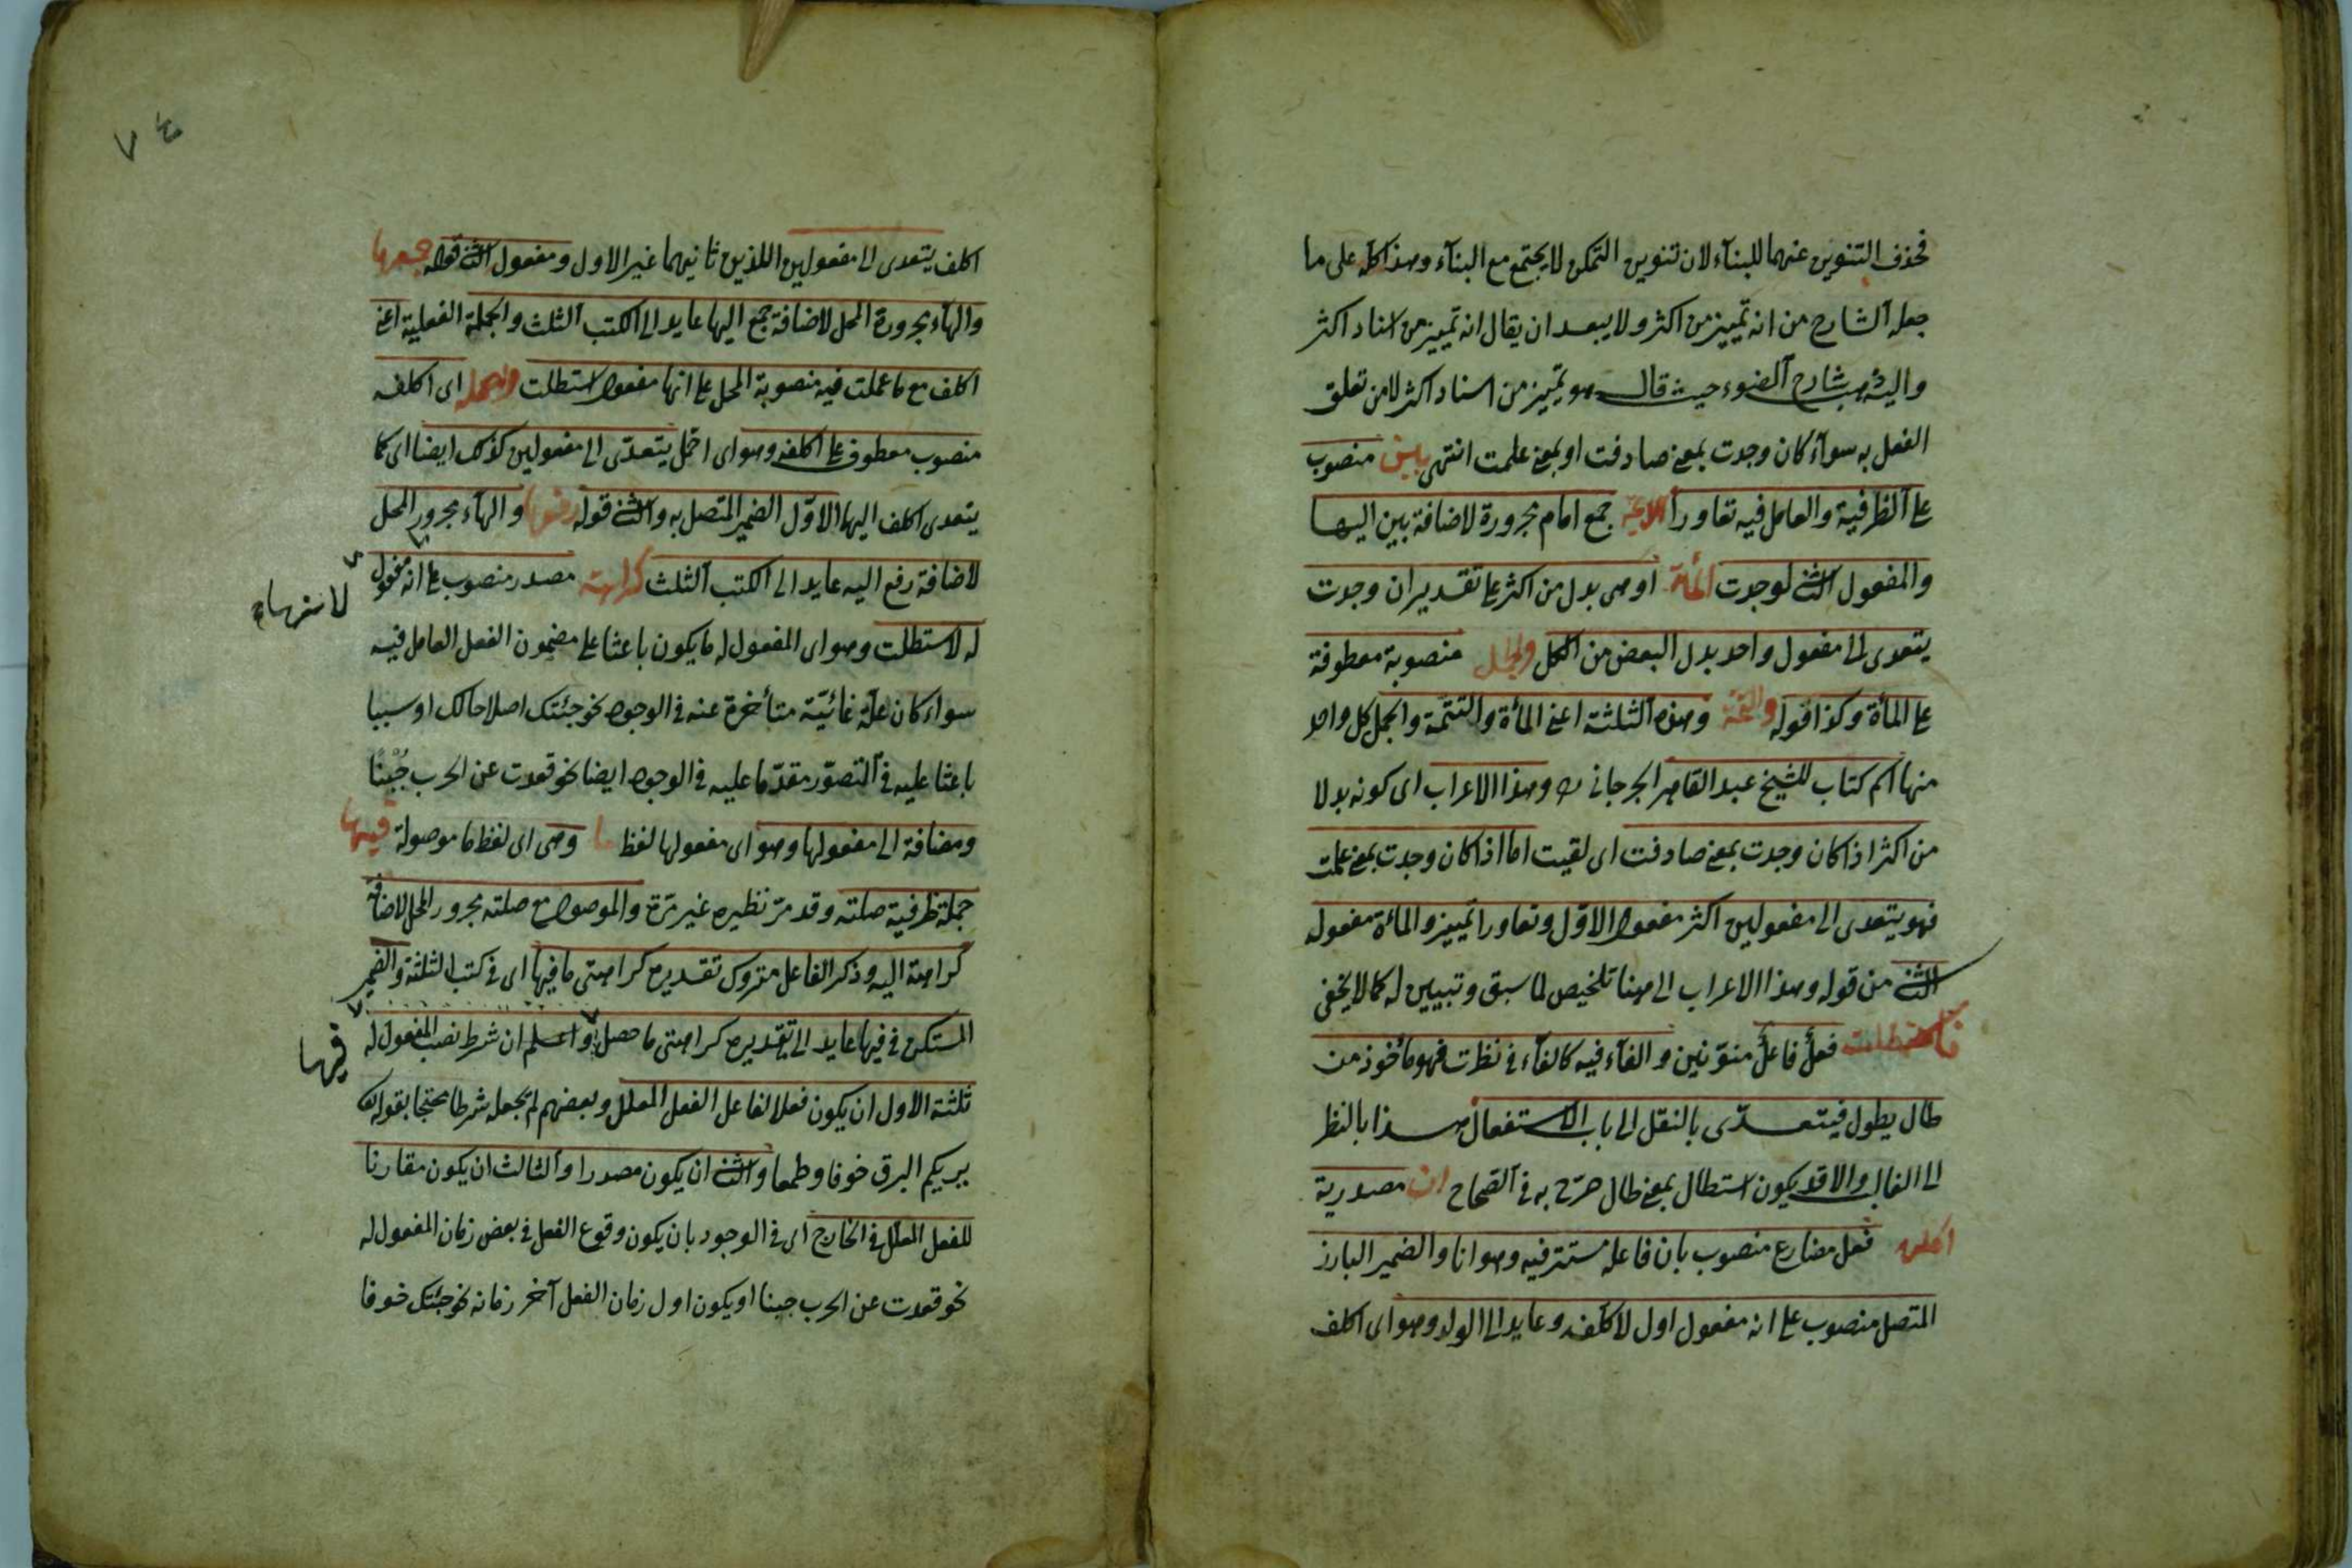 فحذف التنوين عنهما للبنآء لان تنوين التمكن لا يجتمع مع البنآء وهذا كله على ما
جعله الشارح من انه تمييز من اكثر ولا يبعد ان يقال انه تمييز من اسناد اكثر
واليه ذهب شارح الضوء حيث قال هو تمييز من اسناد اكثر لا من تعلق
الفعل به سوآء كان وجدت بمعنى صادفت او بمعنى علمت انتهى بين منصوب
على الظرفية والعامل فيه تعاورا الائمة جمع امام مجرورة لاضافة بين اليها
والمفعول الثاني لوجدت المأة او هى بدل من اكثر على تقدير ان وجدت
يتعدى الى مفعول واحد بدل البعض من الكل والجمل منصوبة معطوفة
على المأة وكذا قوله والتتمة وهذه الثلثة اعنى المأة والتتمة والجمل كل واحد
منها اسم كتاب للشيخ عبد القاهر الجرجانى وهذا الاعراب اى كونه بدلا
من اكثر اذا كان وجدت بمعنى صادفت اى لقيت اما اذا كان وجدت بمعنى علمت
فهو يتعدى الى مفعولين اكثر مفعوله الاوّل وتعاورا تمييز والمأة مفعوله
الثانى من قوله وهذا الاعراب الى هنا تلخيص لما سبق وتبيين له كما لا يخفى
فاستطلت فعلٌ فاعلٌ منوّنين والفآء فيه كالفآء فى نظرت فهو مأخوذ من
طال يطول فيتعدّى بالنقل الى باب الاستفعال هذا بالنظر
الى الغالب والا قد يكون استطال بمعنى طال صرّح به فى الصحاح ان مصدرية
اكلفه فعل مضارع منصوب بان فاعله مستتر فيه وهو انا والضمير البارز
المتصل منصوب على انه مفعول اول لاكلفه وعايد الى الولد وهو اى اكلف
٧٤
اكلف يتعدى الى مفعولين اللذين ثانيهما غير الاول ومفعوله الثانى قوله جمعها
والهآء مجرورة المحل لاضافة جمع اليها عايد الى الكتب الثلث والجملة الفعلية اعنى
اكلف مع ما عملت فيه منصوبة المحل على انها مفعول استطلت واحمله اى اكلفه
منصوب معطوف على اكلفه وهو اى احمل يتعدّى الى مفعولين كذلك ايضا اى كما
يتعدى اكلف اليها الاوّل الضمير المتصل به والثانى قوله رفعها والهآء مجرور المحل
لاضافة رفع اليه عايد الى الكتب الثلث كراهته مصدر منصوب على انه مفعول
له لاستطلت وهو اى المفعول له ما يكون باعثا على مضمون الفعل العامل فيه
سواء كان علّة غائيّة متأخرة عنه فى الوجود نحو جئتك اصلاحا لك او سببا
باعثا عليه فى التصوّر مقدّما عليه فى الوجود ايضا نحو قعدت عن الحرب جُبْنًا
ومضافة الى مفعولها وهو اى مفعولها لفظ ما وهى اى لفظ ما موصولة فيها
جملة ظرفية صلته وقد مرّ نظيره غير مرّة والموصول مع صلته مجرور المحل لاضافة
كراهة اليه وذكر الفاعل متروك تقديره كراهتى ما فيها اى فى كتب الثلثة والضمير
المستكن فى فيها عايد الى تقديره كراهتى ما حصل واعلم ان شرط نصب المفعول له
فيها
ثلثة الاول ان يكون فعلا لفاعل الفعل المعلل وبعضهم لم يجعله شرطا محتجا بقوله
يريكم البرق خوفا وطمعا والثانى ان يكون مصدرا والثالث ان يكون مقارنا
للفعل المعلل فى الخارج اى فى الوجود بان يكون وقوع الفعل فى بعض زمان المفعول له
نحو قعدت عن الحرب جبنا او يكون اول زمان الفعل آخر زمانه نحو جئتك خوفا